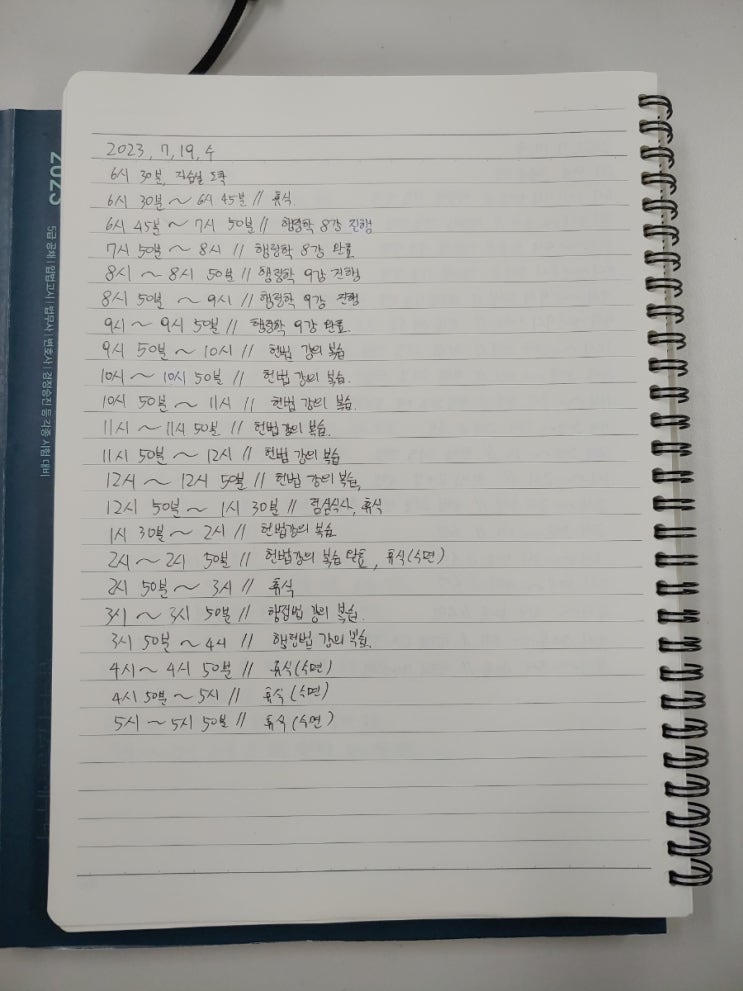 2023, 7, 19, 수
6시 30분, 자습실 도착
6시 30분 ~ 6시 45분 // 휴식.
6시 45분 ~ 7시 50분 // 행정학 8강 진행
7시 50분 ~ 8시 // 행정학 8강 완료
8시 ~ 8시 50분 // 행정학 9강 진행
8시 50분 ~ 9시 // 행정학 9강 진행
9시 ~ 9시 50분 // 행정학 9강 완료.
9시 50분 ~ 10시 // 헌법 강의 복습
10시 ~ 10시 50분 // 헌법 강의 복습.
10시 50분 ~ 11시 // 헌법 강의 복습.
11시 ~ 11시 50분 // 헌법 강의 복습.
11시 50분 ~ 12시 // 헌법 강의 복습
12시 ~ 12시 50분 // 헌법 강의 복습.
12시 50분 ~ 1시 30분 // 점심식사, 휴식
1시 30분 ~ 2시 // 헌법강의 복습
2시 ~ 2시 50분 // 헌법강의 복습 완료, 휴식(수면)
2시 50분 ~ 3시 // 휴식
3시 ~ 3시 50분 // 행정법 강의 복습.
3시 50분 ~ 4시 // 행정법 강의 복습.
4시 ~ 4시 50분 // 휴식(수면)
4시 50분 ~ 5시 // 휴식(수면)
5시 ~ 5시 50분 // 휴식(수면)
2023
5급 공채 | 입법고시 | 법무사 | 변호사 | 경정승진 등 각종 시험 대비